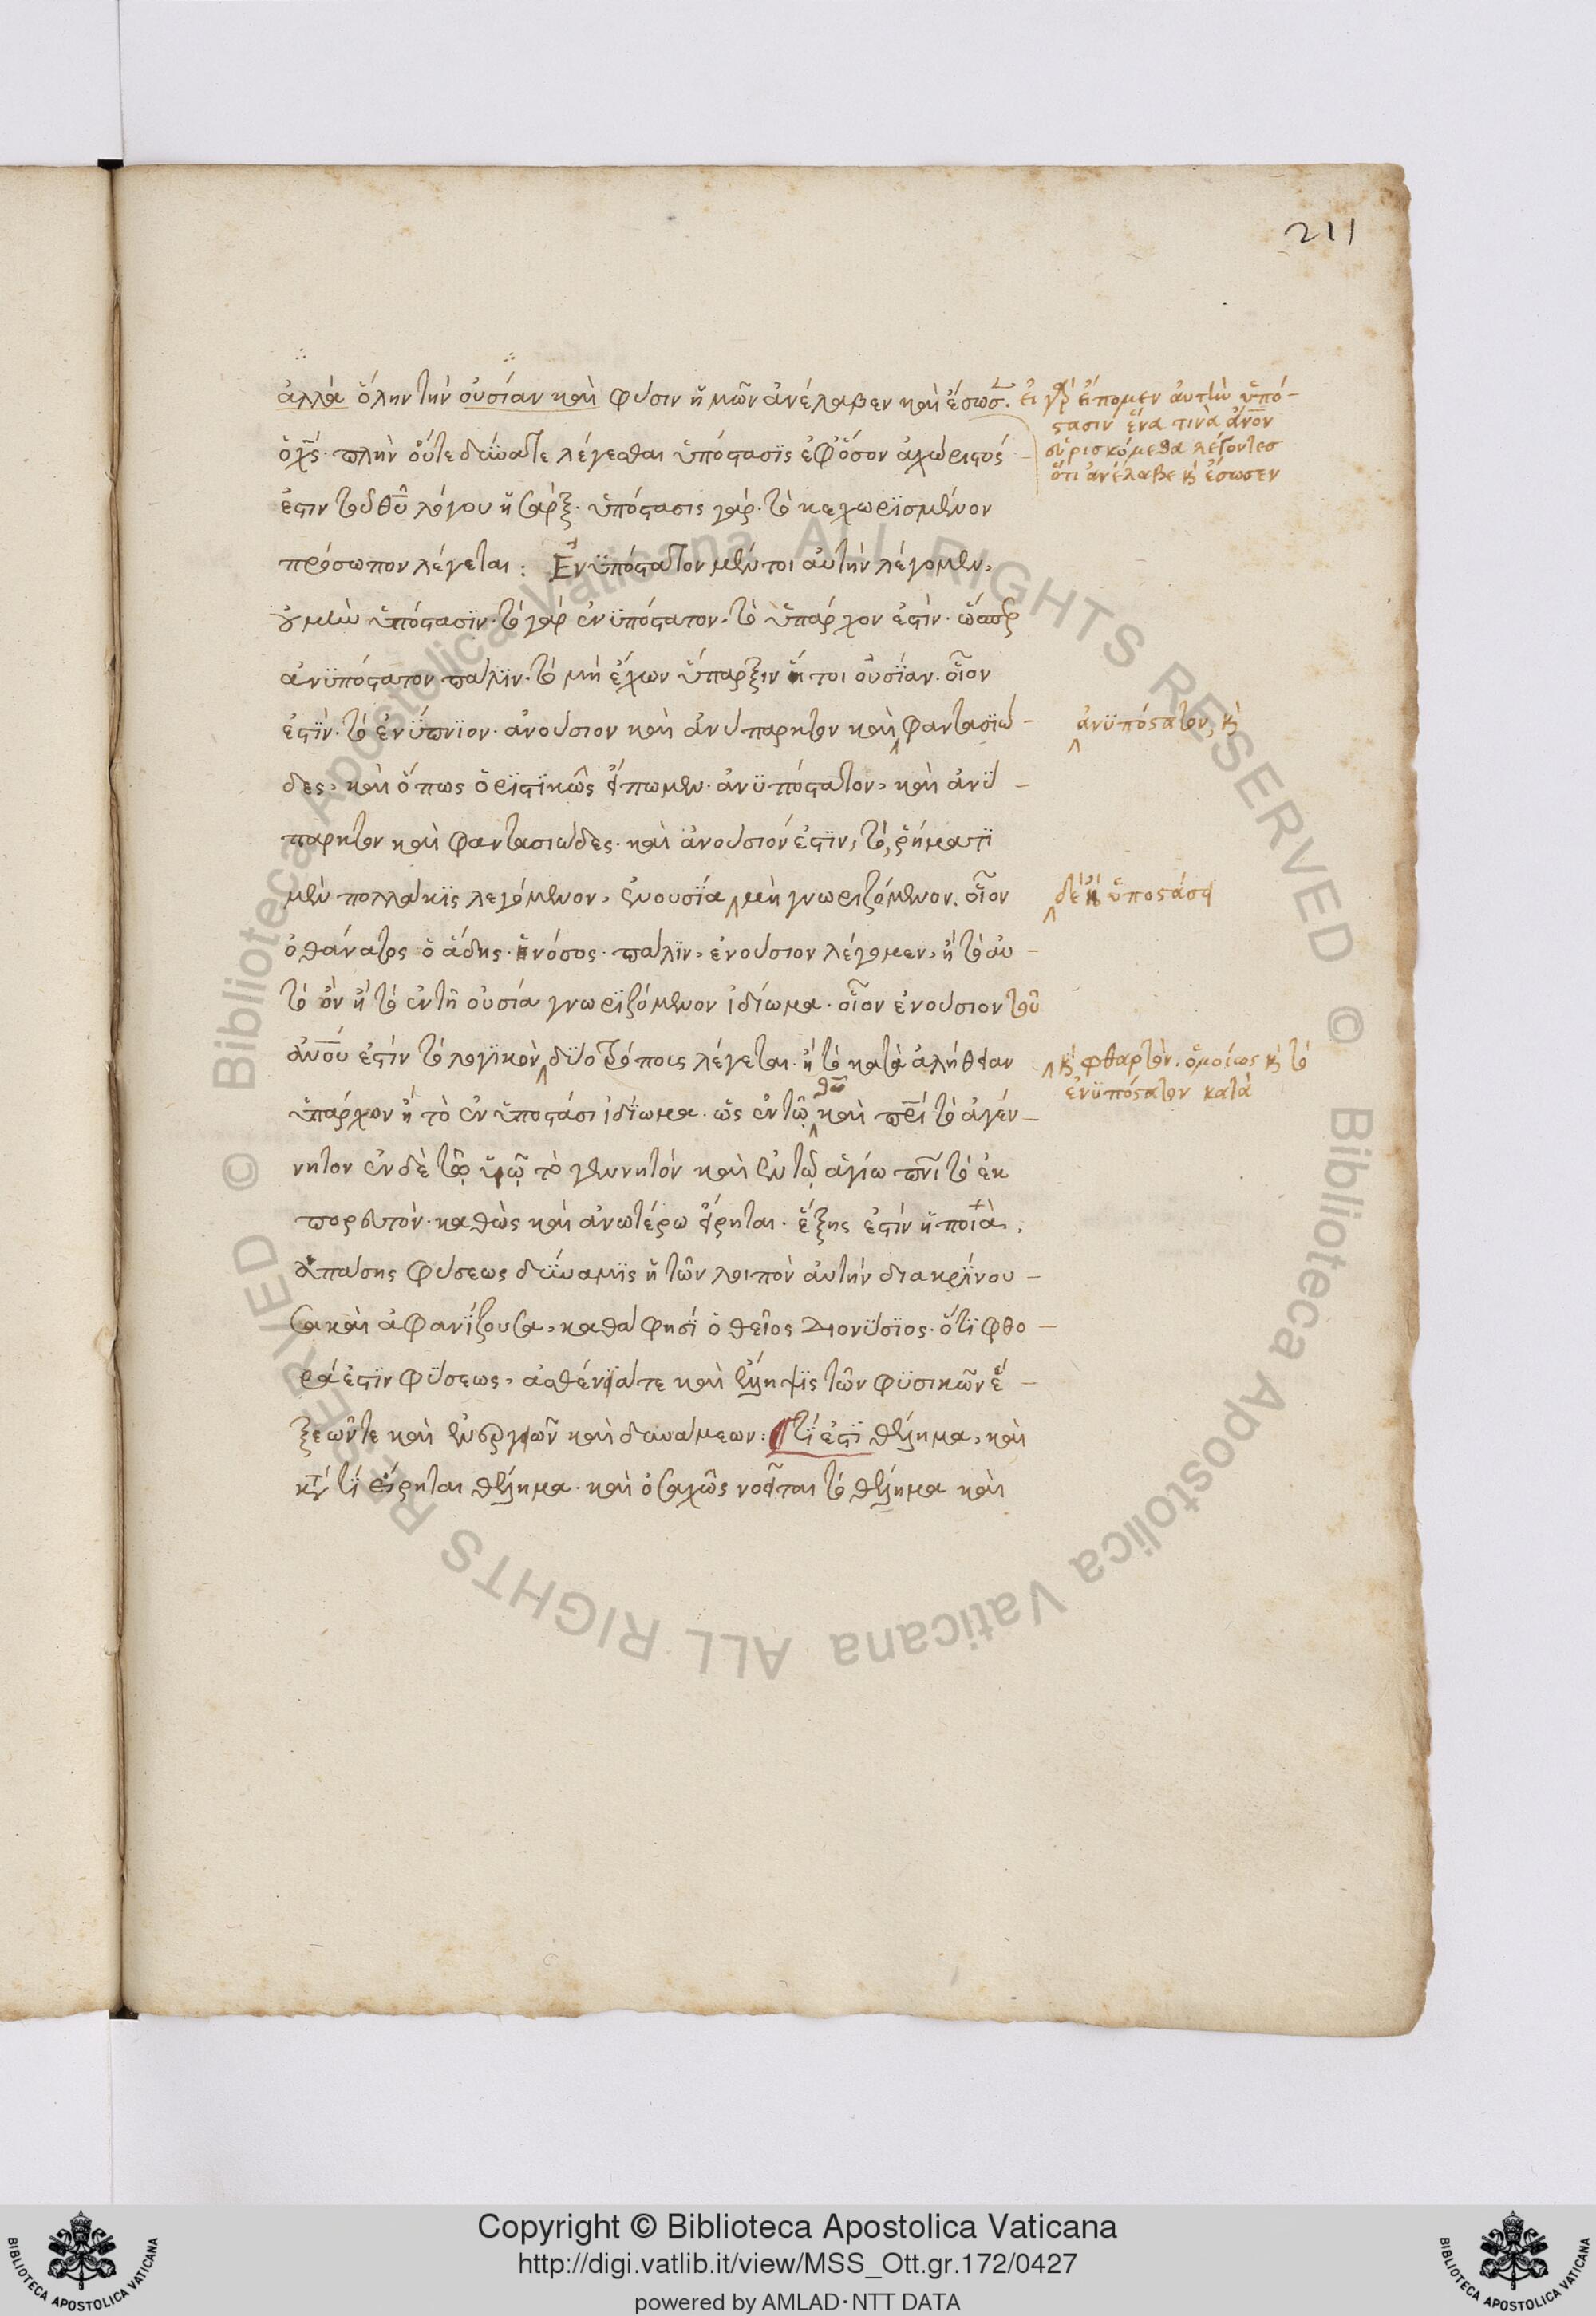 211
ἀλλὰ ὅλην τὴν οὐσίαν καὶ φύσιν ἡμῶν ἀνέλαβεν καὶ ἔσωσ.
ὁ χς· πλὴν οὔτε δύναται λέγεσθαι ὑπόστασϊς ἐφ ὅσον ἀχώριστός
ἐστιν τοῦ θυ λόγου ἡ σάρξ· ὑπόστασις γάρ· τὸ κεχωρϊσμένον
πρόσωπον λέγεται: Ἐνϋπόστατον μέντοι αὐτὴν λέγομεν,
οὐ μὴν ὑπόστασϊν· τὸ γάρ ἐνϋπόστατον, τὸ ὕπαρχον ἐστὶν· ὥσπερ
ἀνϋπόστατον πάλϊν· τὸ μὴ ἔχων ὕπαρξιν ἤτοι οὐσΐαν· οἷον
ἐστϊν· τὸ ἐνΰπνϊον· ἀνούσιον καὶ ἀνύπαρκτον καὶ φαντασϊώ-
δες, καὶ ὅπως ὁρϊστϊκῶς εἴπωμεν· ἀνϋπόστατον, καὶ ἀνΰ-
παρκτον καὶ φαντασιώδες· καὶ ἀνούσιόν ἐστϊν, τὸ, ῥήματϊ
μὲν πολλάκϊς λεγόμενον, ἐν οὐσΐα μὴ γνωριζόμενον. οἷον
ὁ θάνατος ὁ ἅδης· ἡ νόσος· πάλϊν, ἐνούσιον λέγομεν, ἢ τὸ αὐ-
τὸ ὂν ἢ τὸ ἐν τῆ οὐσία γνωρϊζόμενον ἰδίωμα· οἷον ἐνούσιον τοῦ
ἀνου ἐστὶν τὸ λογϊκὸν δϋο τρόποις λέγεται· ἢ τὸ κατὰ ἀλήθειαν
ὑπάρχον ἢ τὸ ἐν ὑποστάσι ἰδΐωμα· ὡς ἐν τῶ θω καὶ πρι τὸ ἀγέν-
νητον ἐν δὲ τῷ υἱῷ τὸ γεννητὸν καὶ ἐν τῷ ἁγίω πνι τὸ ἐκ
πορευτὸν· καθὼς καὶ ἀνωτέρω εἴρηται· ἕξης ἐστὶν ἡ ποιὰ,
ἁπάσης φύσεως δΰναμϊς ἡ τῶν λοιπὸν αὐτὴν διακρΐνου-
σα καὶ ἀφανΐζουσα, καθά φησϊ ὁ θεῖος Διονΰσϊος· ὅτϊ φθο-
ρά ἐστϊν φΰσεως, ἀσθένειά τε καὶ ἔλλειψϊς τῶν φϋσικῶν ἕ-
ξεών τε καὶ ἐνεργειῶν καὶ δυνάμεων: τΐ ἐστϊ θέλημα, καὶ
κατὰ τϊ εἴρηται θέλημα· καὶ ὁσαχῶς νοεῖται τὸ θέλημα καὶ
εἰ γὰρ εἴπομεν αὐτὴν ὑπό-
στασιν ἕνα τινὰ ἀνον
εὑρισκόμεθα λέγοντες
ὅτι ἀνέλαβε κὶ ἔσωσεν
ἀνϋπόστατον, κὶ
δὲ ἢ ὑποστάσει
κὶ φθαρτὸν. ὁμοίως κὶ τὸ
ἐνϋπόστατον κατὰ
© Biblioteca Apostolica Vaticana ALL RIGHTS RESERVED © Biblioteca Apostolica Vaticana ALL RIGHTS RESERVED
Copyright © Biblioteca Apostolica Vaticana
http://digi.vatlib.it/view/MSS_Ott.gr.172/0427
powered by AMLAD·NTT DATA
BIBLIOTECA APOSTOLICA VATICANA
BIBLIOTECA APOSTOLICA VATICANA